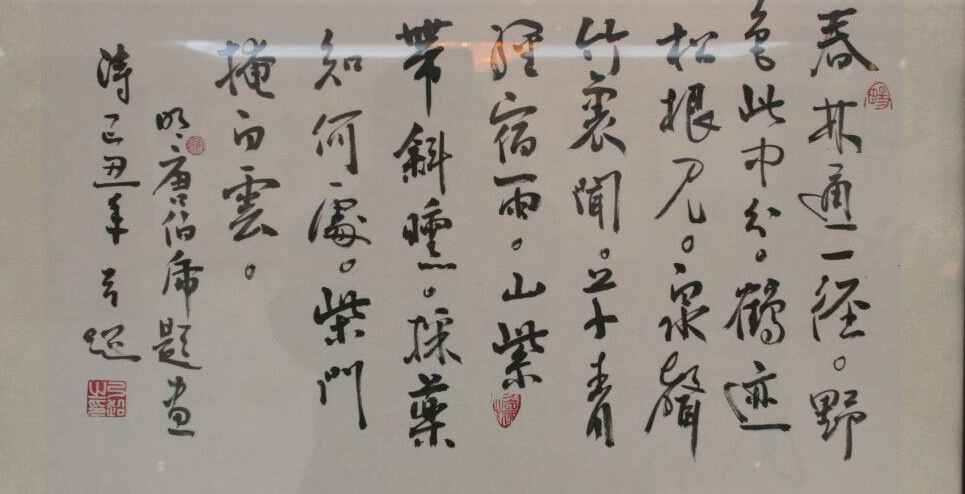 春林通一徑。野
色此中分。鶴迹
松根見。泉聲
竹裏聞。草青
經宿雨。山紫
帶斜曛。採藥
知何處。柴門
掩白雲。
明唐伯虎題畫
詩 己丑年 超